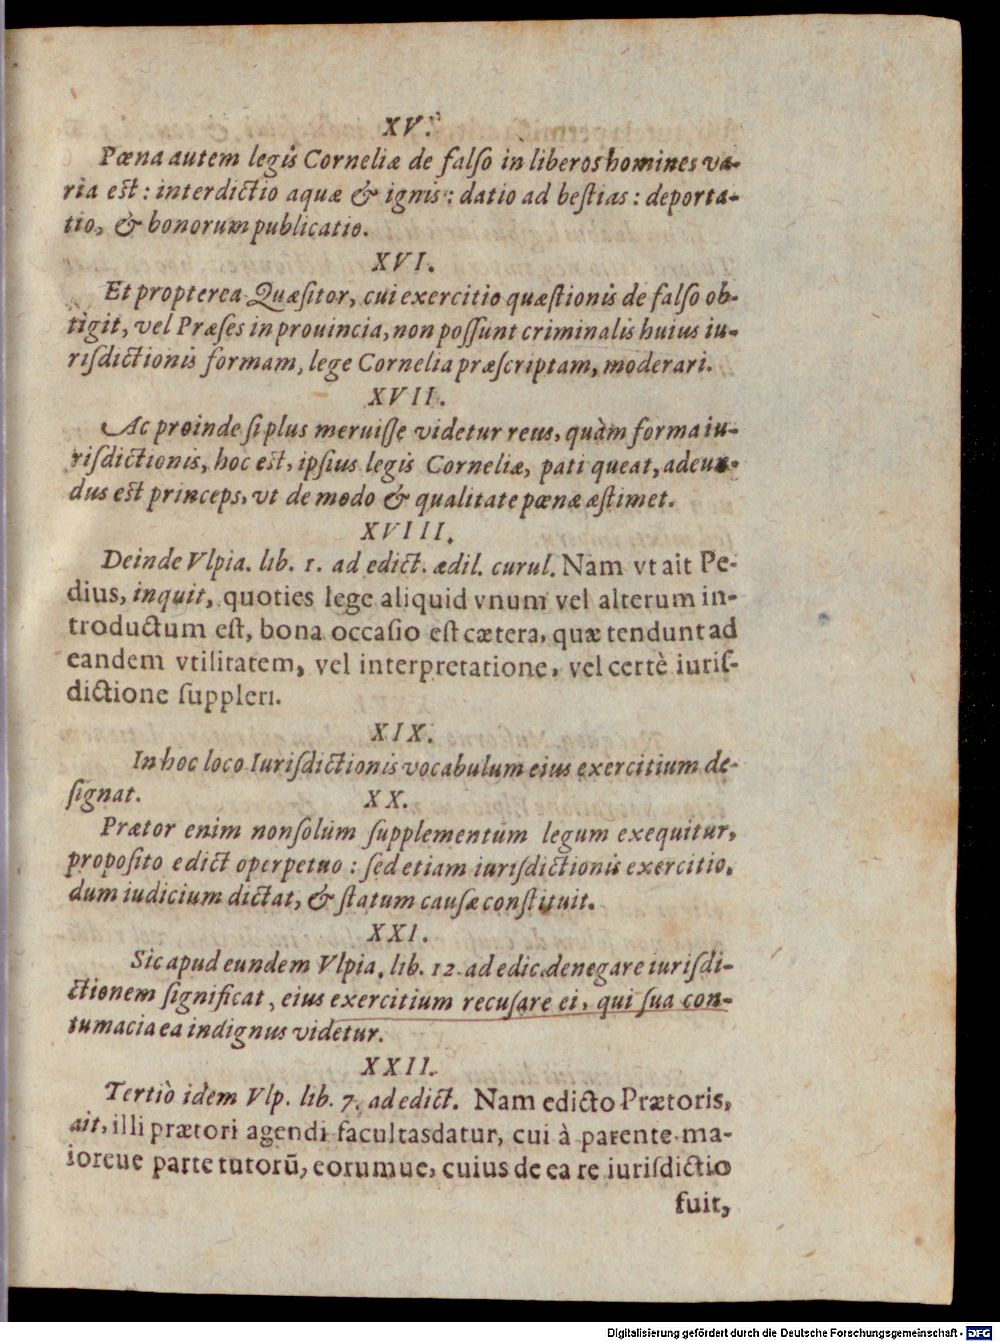 XV.
Pœna autem legis Corneliæ de falſo in liberos homines va-
ria est: interdictio aquæ & ignis: datio ad beſtias: deporta-
tio, & bonorum publicatio.
XVI.
Et propterea Quæſitor, cui exercitio quæſtionis de falſo ob-
tigit, vel Præſes in prouincia, non poſſunt criminalis huius iu-
riſdictionis formam, lege Cornelia præſcriptam, moderari.
XVII.
Ac proinde ſi plus meruiſſe videtur reus, quàm forma iu-
riſdictionis, hoc est, ipſius legis Corneliæ, pati queat, adeun-
dus est princeps, vt de modo & qualitate pœnæ æſtimet.
XVIII.
Deinde Vlpia. lib. 1. ad edict. ædil. curul. Nam vt ait Pe-
dius, inquit, quoties lege aliquid vnum vel alterum in-
troductum eſt, bona occaſio eſt cætera, quæ tendunt ad
eandem vtilitatem, vel interpretatione, vel certè iuriſ-
dictione ſuppleri.
XIX.
In hoc loco Iuriſdictionis vocabulum eius exercitium de-
ſignat.
XX.
Prætor enim non ſolùm ſupplementum legum exequitur,
propoſito edict o perpetuo: ſed etiam iuriſdictionis exercitio,
dum iudicium dictat, & ſtatum cauſæ conſtituit.
XXI.
Sic apud eundem Vlpia. lib. 12. ad edic. denegare iuriſdi-
ctionem ſignificat, eius exercitium recuſare ei, qui ſua con-
tumacia ea indignus videtur.
XXII.
Tertiò idem Vlp. lib. 7. ad edict. Nam edicto Prætoris,
ait, illi prætori agendi facultas datur, cui à parente ma-
ioreue parte tutorū, eorumue, cuius de ea re iuriſdictio
fuit,
Digitalisierung gefördert durch die Deutsche Forschungsgemeinschaft - DFG